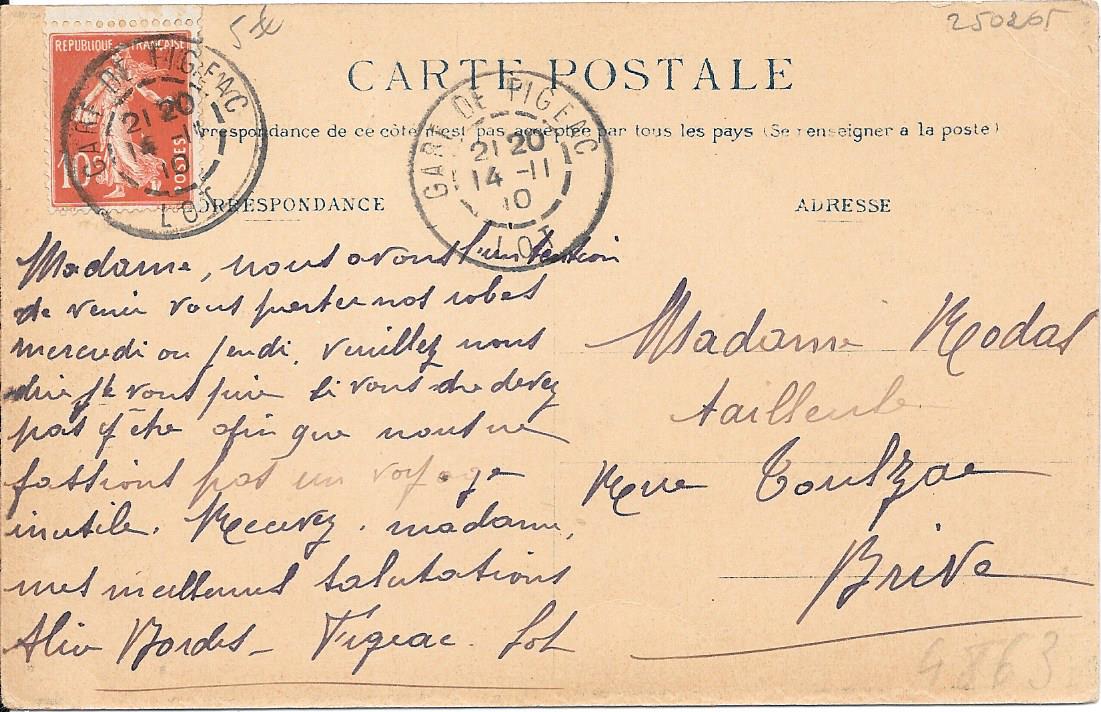 5 €
250265
REPUBLIQUE FRANÇAISE
10
POSTES
GARE DE FIGEAC
21 20
14 -11
10
LOT
CARTE POSTALE
GARE DE FIGEAC
21 20
14 -11
10
LOT
rrespondance de ce côté n'est pas acceptée par tous les pays (Se renseigner a la poste)
CORRESPONDANCE
Madame, nous avons l'intention
de venir vous porter nos robes
mercredi ou jeudi, veuillez nous
dire je vous prie si vous ne devez
pas y être afin que nous ne
fassions pas un voyage
inutile. Recevez, madame,
mes meilleures salutations
Bordes - Figeac. Lot
ADRESSE
Madame Rodas
tailleuse
Rue Toulzac
Brive
4863